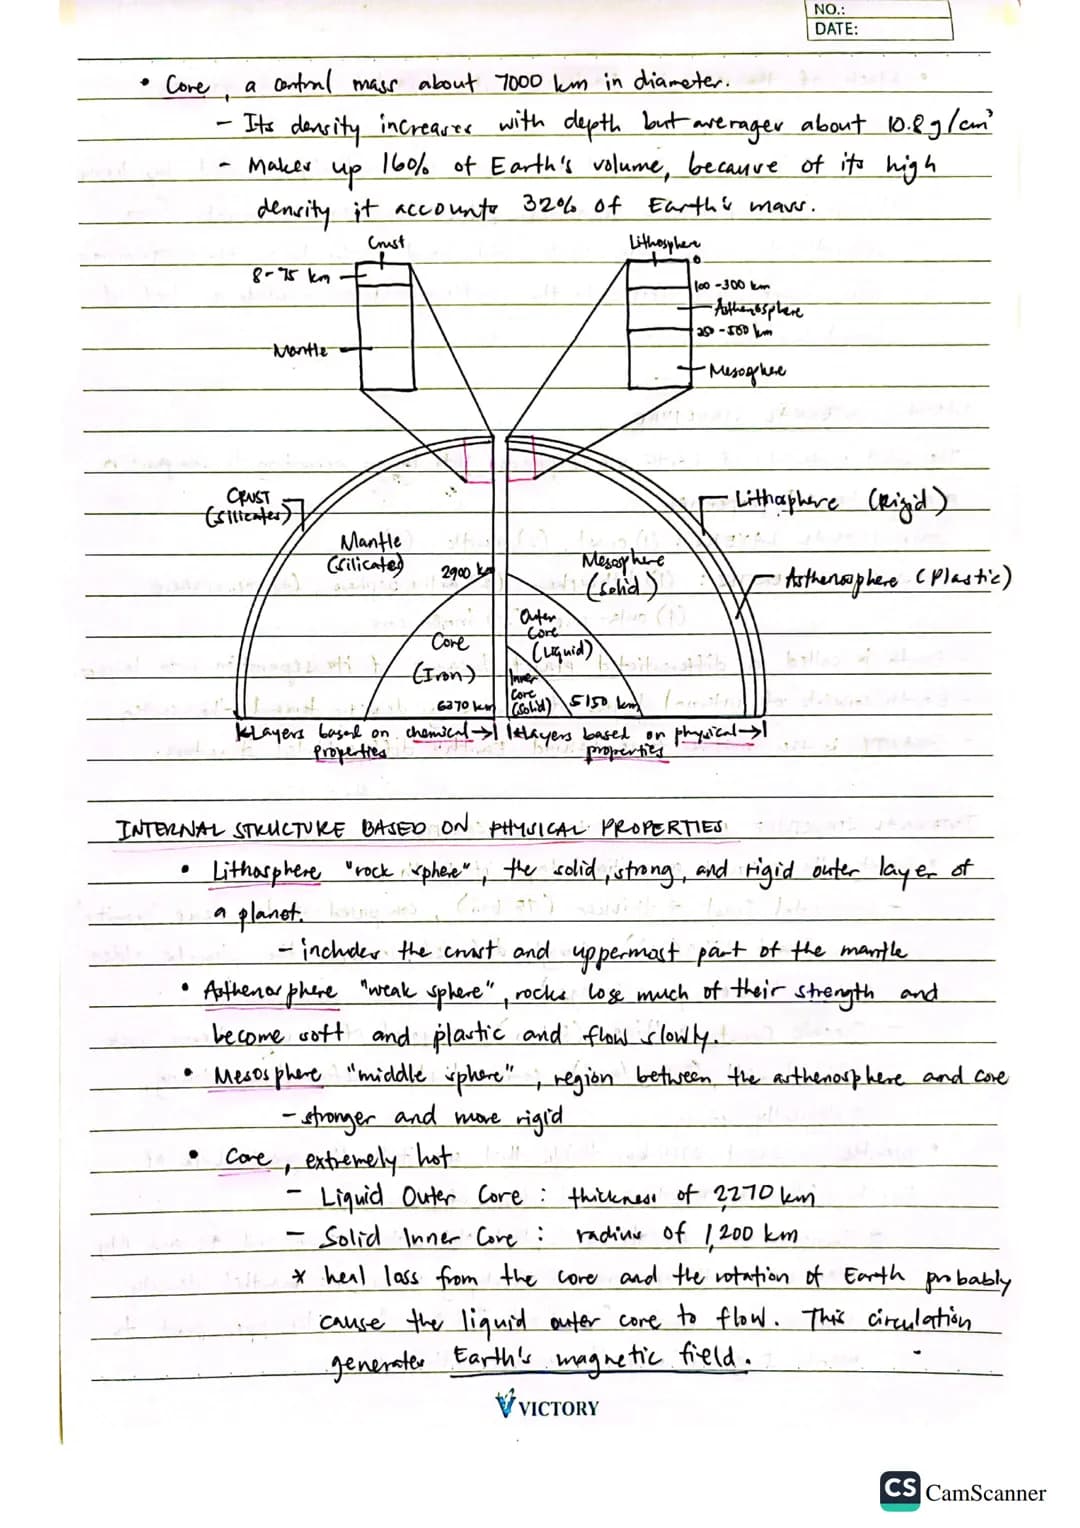 NO.:
DATE:
• Core, a central mass about 7000 km in diameter.
- Its density increases with depth but averages about 10.8 g/cm³
- Makes up 16% of Earth's volume, because of its high
density it accounts 32% of Earth's mass.
Crust
8-75 km
Mantle
Lithosphere
0
100-300 km
Asthenosphere
250-500 km
Mesosphere
CRUST
(silicates)
Mantle
(silicates)
2900 km
Core
(Iron)
6370 km
Mesosphere
(solid)
Outer
Core
(Liquid)
Inner
Core
(solid)
5150 km
Lithosphere (Rigid)
Asthenosphere (Plastic)
Layers based on chemical
Properties
Layers based on physical
properties
INTERNAL STRUCTURE BASED ON PHYSICAL PROPERTIES
• Lithosphere "rock sphere", the solid, strong, and rigid outer layer of
a planet.
- includes the crust and uppermost part of the mantle
• Asthenosphere "weak sphere", rocks lose much of their strength and
become soft and plastic and flow slowly.
• Mesosphere "middle sphere", region between the asthenosphere and core
- stronger and more rigid
• Core, extremely hot
- Liquid Outer Core : thickness of 2270 km
- Solid Inner Core : radius of 1,200 km
* heal loss from the core and the rotation of Earth probably
cause the liquid outer core to flow. This circulation
generates Earth's magnetic field.
VICTORY
CS CamScanner